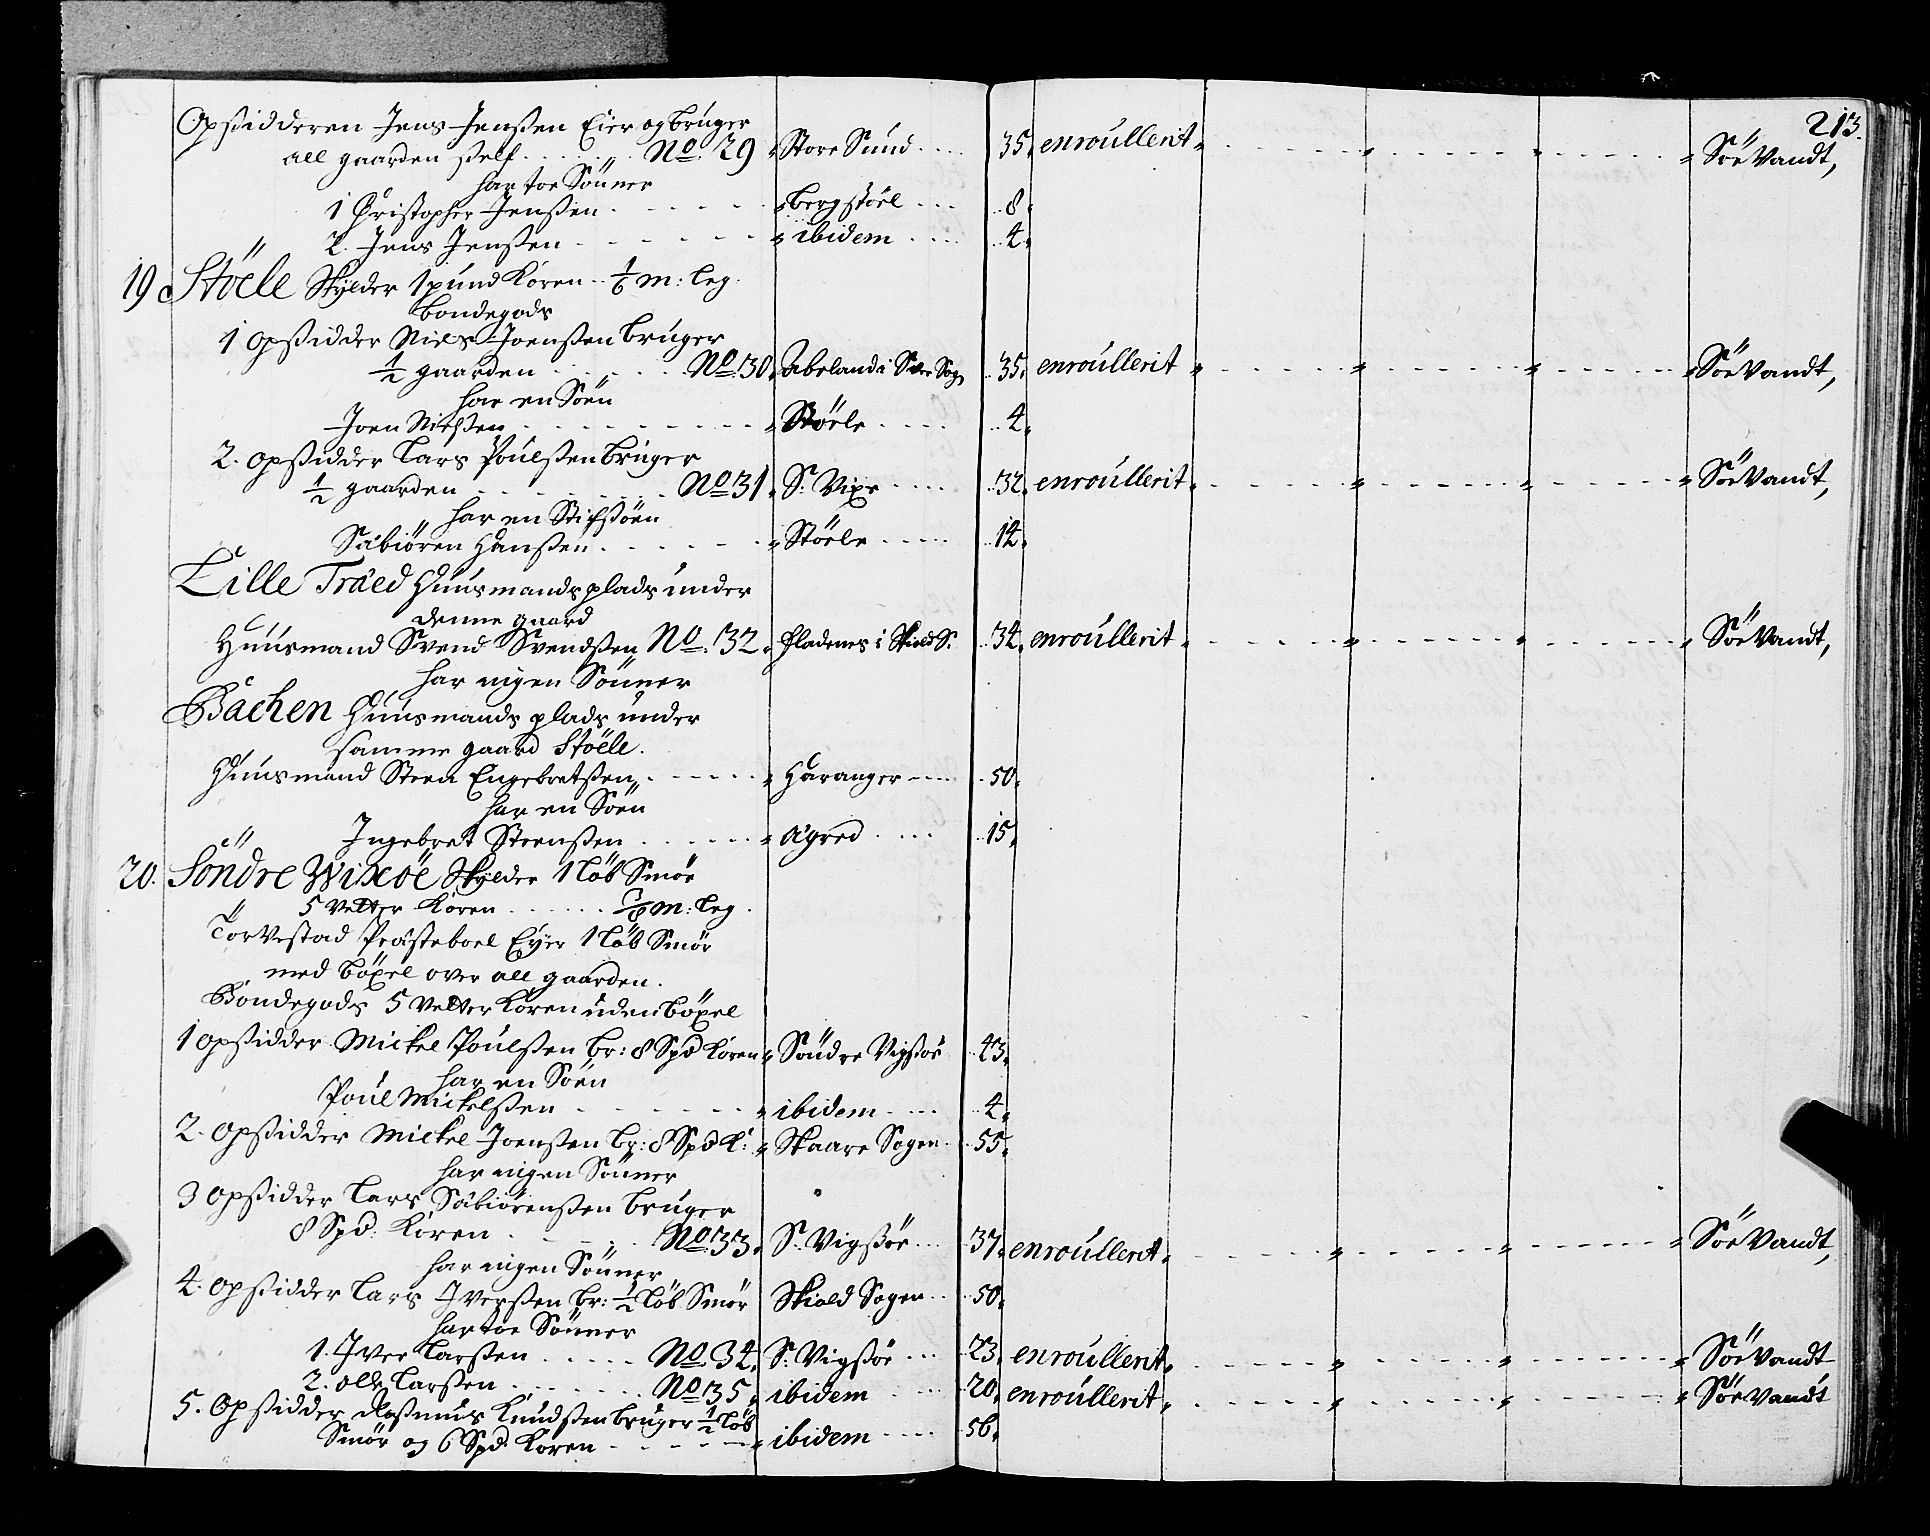 213.
Opsidderen Jens Jenssen Eier og bruger
all gaarden self ...... No. 29 Store Sund .... 35. enroullerit Söe Vandt,
har toe Sönner
1 Christopher Jenssen ...... bergstöel ... 8.
2. Jens Jenssen ...... ibidem .... 4.
19 Stöele Skylder 1 pund Koren .. 1/6 m: leg.
bondegods
1 Opsidder Niels Joenssen bruger
1/2 gaarden ...... No. 30. Abeland i Sogn 35. enroullerit Söe Vandt,
har en Söen
Joen Nielssen ...... Stöele .... 4.
2. Opsidder Lars Poulssen bruger
1/2 gaarden ...... No. 31. S: Vixe .... 32. enroullerit Söe Vandt,
har en Stifsöen
Säbiören Hanssen ...... Stöele .... 14.
Lille Träed Huusmands plads under
denne gaard
Huusmand Svend Svendssen No. 32. Fladenes i Skiold S. 34. enroullerit Söe Vandt,
har ingen Sönner
Bachen Huusmands plads under
samme gaard Stöele.
Huusmand Steen Engebretssen ...... Haranger .... 50.
har en Söen
Ingebret Steenssen ...... Agred .... 15.
20. Söndre Wixöe Skylder 1 Löb Smör
5 Vetter Koren ...... m: leg.
Torvestad Präste boel Eyer 1 Löb Smör
med böxel over all gaarden.
Bondegods 5 Vetter Koren uden böxel
1 Opsidder Mickel Poulssen br: 8 Spd Koren Söndre Vigsöe 43.
har en Söen
Poul Mickelssen ...... ibidem .... 4.
2. Opsidder Mickel Joenssen br: 8 Spd K: Skaare Sogen .. 55.
har ingen Sönner
3 Opsidder Lars Säbiörenssen bruger
8 Spd: Koren ...... No. 33. S: Vigsöe ... 37. enroullerit Söe Vandt,
har ingen Sönner
4. Opsidder Lars Iverssen br: 1/2 Löb Smör Skiold Sogen .. 50.
har toe Sönner
1. Iver Larssen ..... No. 34. S: Vigsöe ... 23. enroullerit Söe Vandt
2. Olle Larssen ...... No. 35. ibidem .... 20. enroullerit Söe Vandt
5. Opsidder Rasmus Knudssen bruger 1/2 Löb
Smör og 6 Spd: Koren ...... ibidem .... 56.